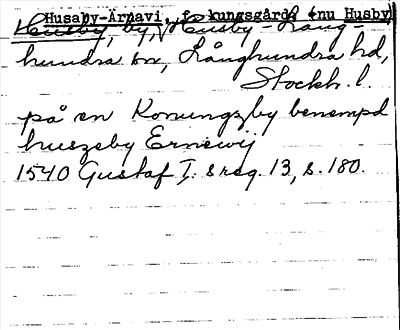 Husaby-Arnavi, f. kungsgård (nu Husby)
Husby, by, Husby-Lång-
hundra sn, Långhundra hd,
Stockh. l.
på en Konungzby benempd
huszeby Ernewij
1540 Gustaf I:s reg. 13, s. 180.